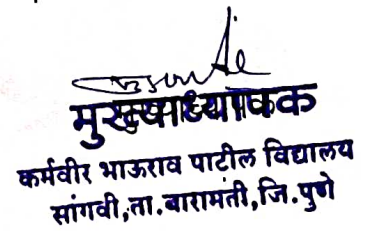 मुख्याध्यापक
कर्मवीर भाऊराव पाटील विद्यालय
सांगवी,ता.बारामती,जि.पुणे